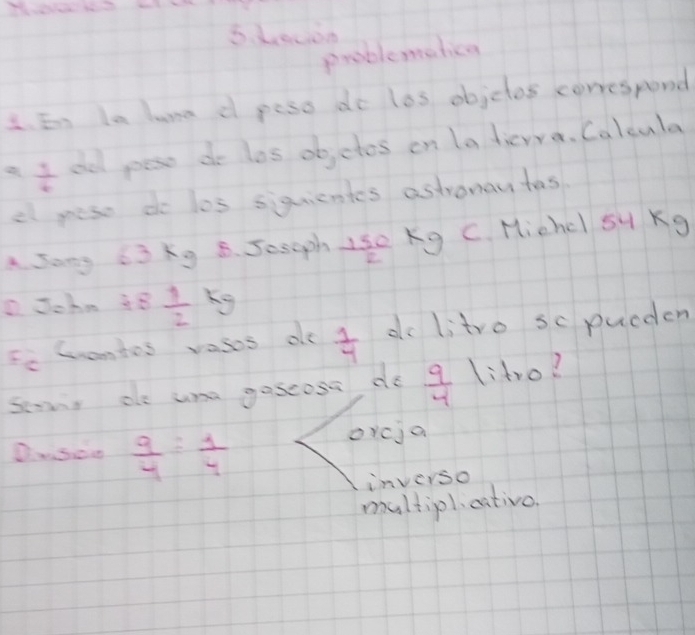 problematica
1. En la luna el peso de los objetos correspond
a 1/6 del peso de los objetos en la tierra. Calcula
el peso de los siguientes astronautas.
A. Jong 63 Kg B. Joseph 150/2 Kg C. Michel 54 Kg
D John 38 1/2 Kg
Cuantos vasos de 1/4 de litro se pueden
de una gaseosa de 9/4 litro?
9/4 ÷ 1/4
oreja
inverso
multiplicativo.